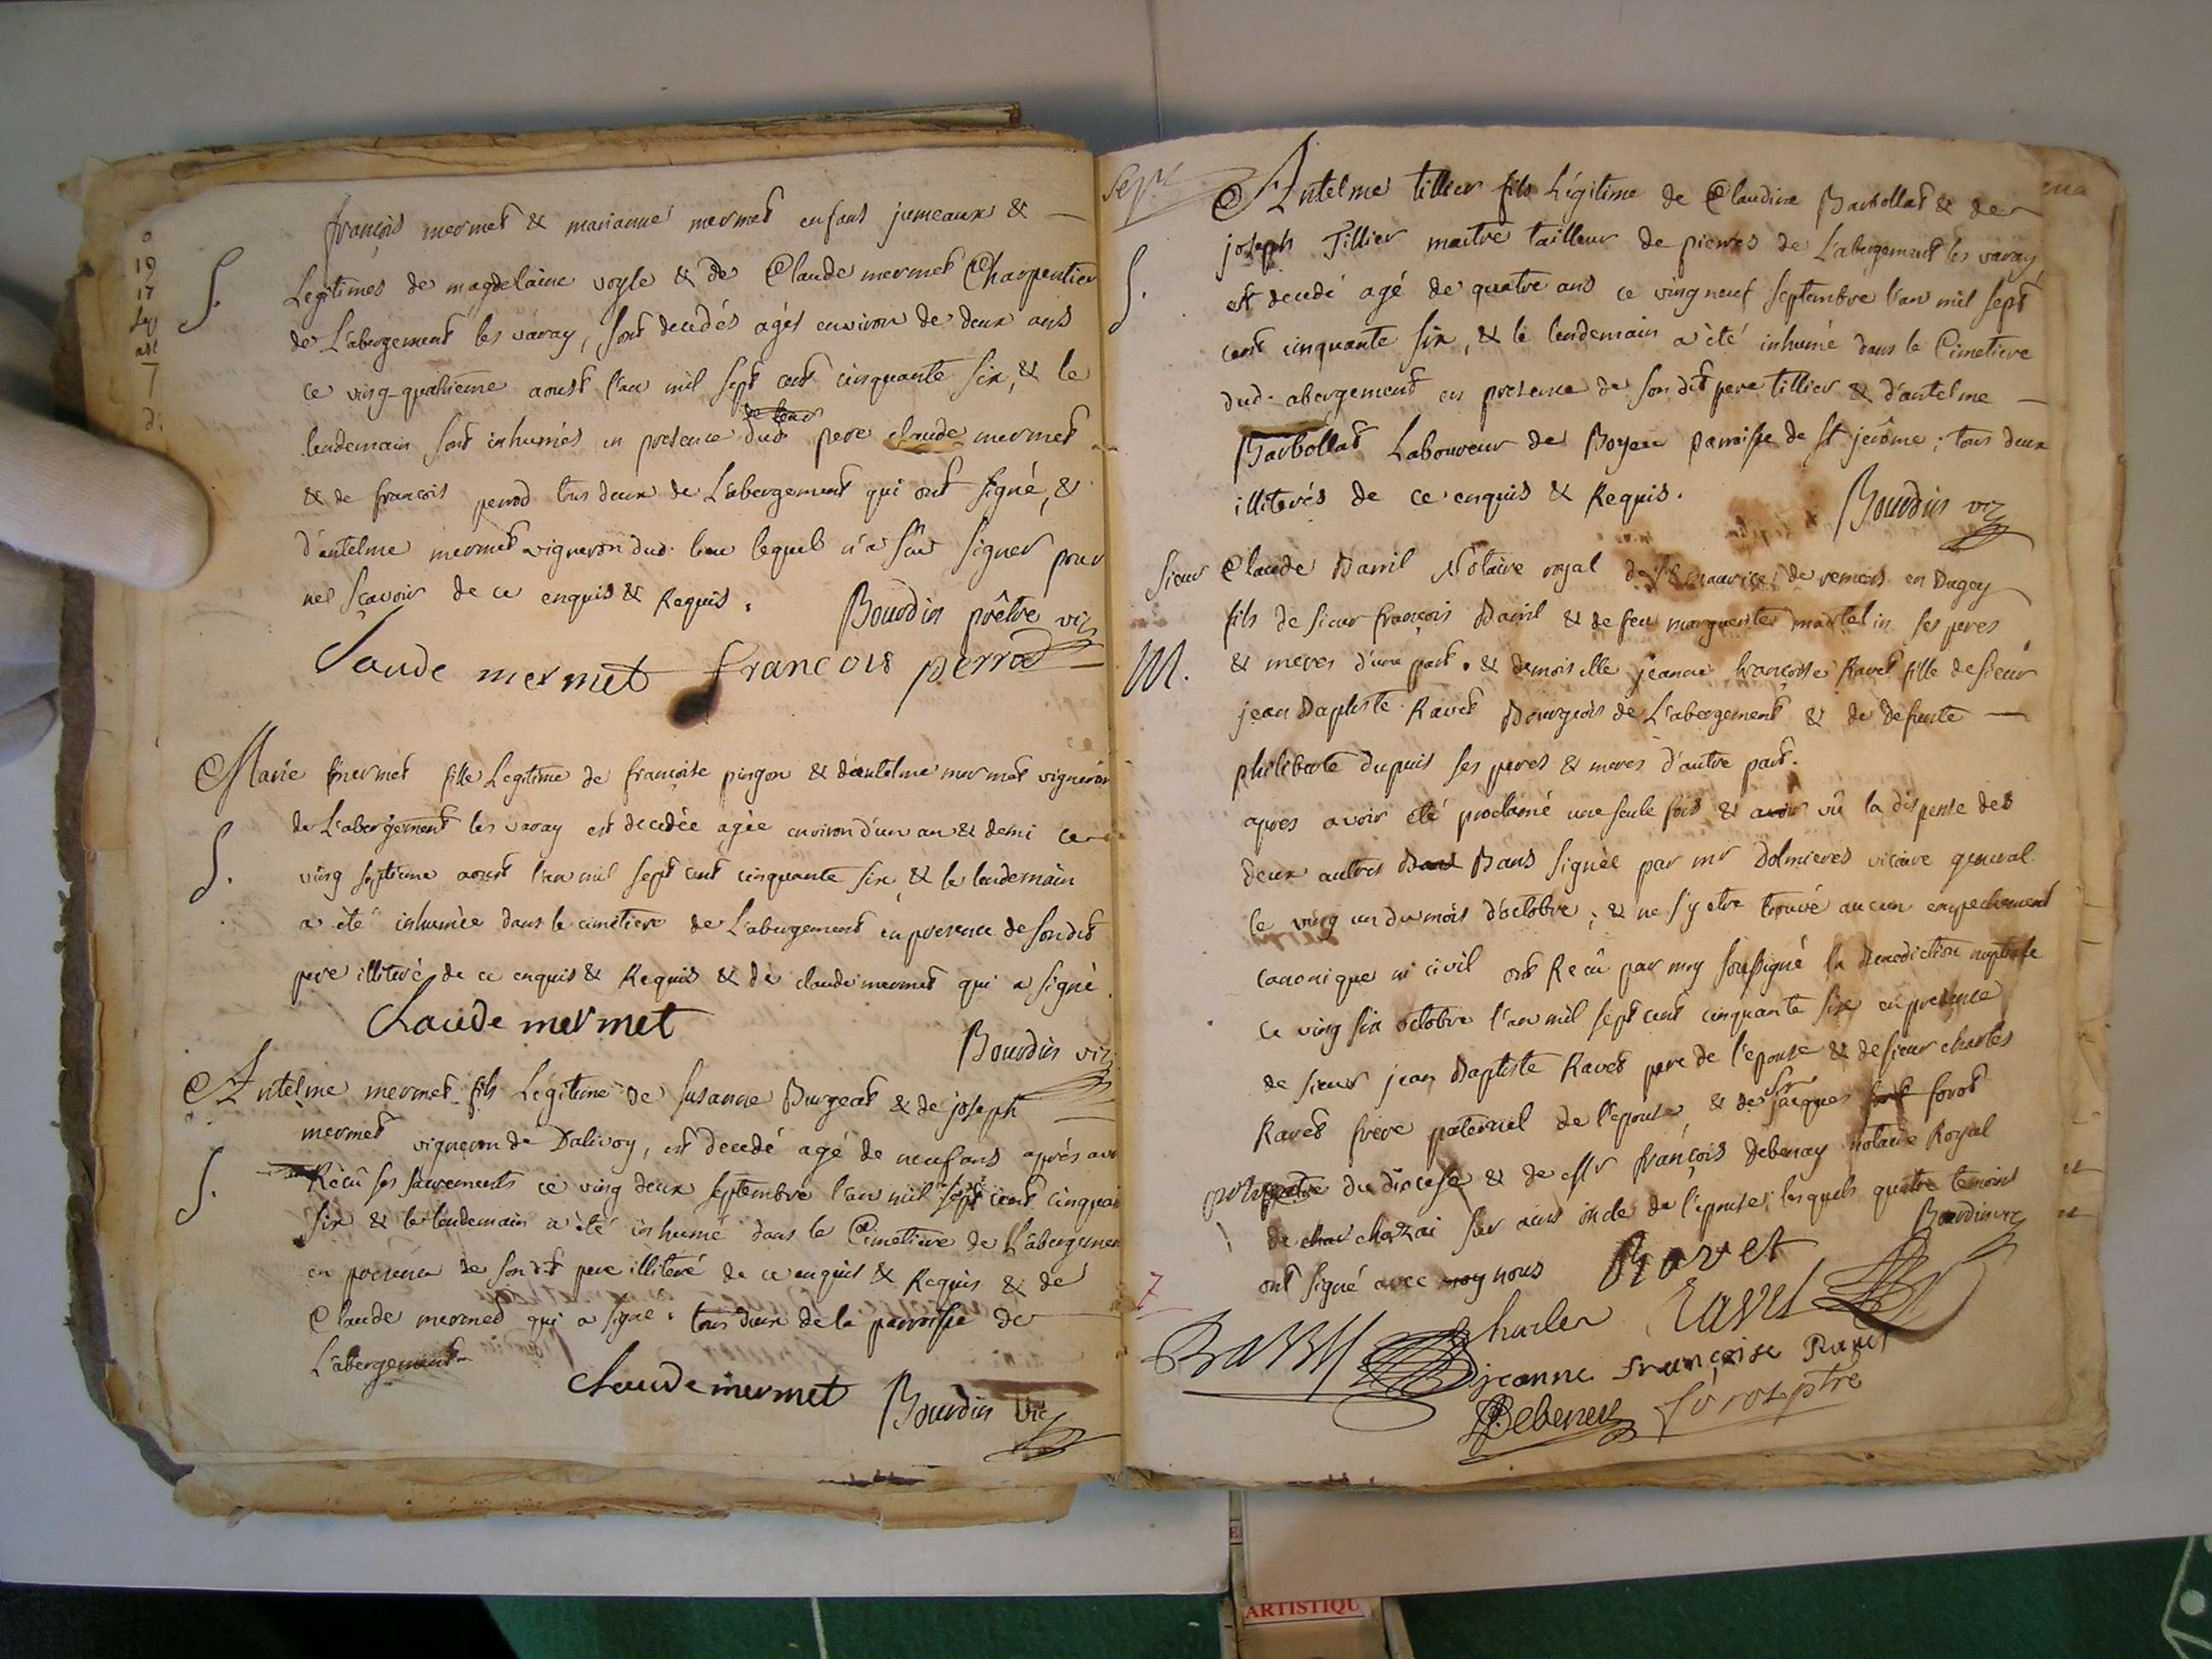 françois mermet & marianne mermet enfans jumeaux &
S. Legitimes de magdelaine voyle & de Claude mermet Charpentier
de L'abergement les varay, sont decedés agés environ de deux ans
ce ving-quatrieme aoust l'an mil sept cent cinquante six, & le
de leur
lendemain sont inhumés en presence dud pere claude mermet
& de francois perrod tous deux de L'abergement qui ont signé, &
d'antelme mermet vigneron dud. lieu lequel n'a sçu signer pour
ne sçavoir de ce enquis & Requis.
Bourdin prêtre vic
Claude mermet francois perrod
Marie mermet fille Legitime de françoise pingon & d'antelme mermet vigneron
S. de L'abergement les varay est decedée agée environ d'un an & demi ce
ving septieme aoust l'an mil sept cent cinquante six, & le lendemain
a été inhumée dans le cimetiere de L'abergement en presence de son dit
pere illiteré de ce enquis & Requis & de claude mermet qui a signé.
Claude mermet
Bourdin vic
Antelme mermet fils Légitime de susanne Burgeat & de joseph
mermet vigneron de Dalivoy, est decedé agé de neuf ans après avoir
S. Reçû ses sacrements ce ving deux septembre l'an mil sept cent cinquan
six & le lendemain a été inhumé dans le Cimetiere de L'abergemen
en presence de son dit pere illiteré de ce enquis & Requis & de
Claude mermed qui a signé. tous deux de la parroisse de
L'abergement
Claude mermet Bourdin vic
Sepre
Antelme tillier fils Légitime de Claudine Barbollat & de
joseph Tillier maitre tailleur de pierres de L'abergement les varay
S. est decedé agé de quatre ans ce ving neuf septembre l'an mil sept
cent cinquante six, & le lendemain a été inhumé dans le Cimetiere
dud. abergement en presence de son dit pere tillier & d'antelme
Barbollat Laboureur de Boyeu parroisse de st jerôme; tous deux
illiterés de ce enquis & Requis.
Bourdin vic
Sieur Claude Baril Notaire royal de St maurice de remens en Bugey
fils de sieur françois Baril & de feu marguerite martelin ses peres
M. & meres d'une part. & demoiselle jeanne françoise Ravet fille de sieur
jean Baptiste Ravet Bourgeois de L'abergement & de defunte
philiberte dupuis ses peres & meres d'autre part.
apres avoir été proclamé une seule fois & avoir vû la dispense des
deux autres Bans Bans signée par mr Dolmieres vicaire general
le ving un du mois d'octobre; & ne s'y etre trouvé aucun empechement
canonique ni civil ont Reçû par moy soussigné la Benediction nuptiale
ce ving six octobre l'an mil sept cent cinquante six en presence
de sieur jean Baptiste Ravet pere de l'epouse & de sieur charles
Ravet frere paternel de l'epouse, & de sr jacques forot forot
prêtre du diocese & de Mr françois debenay notaire Royal
de char chazai sur ains oncle de l'epouse; lesquels quatre temoins
ont signé avec moy nous
Bourdin vic
Ravet
Charles Ravet
jeanne francoise Ravet
Debeney forot ptre
7
ARTISTIQU